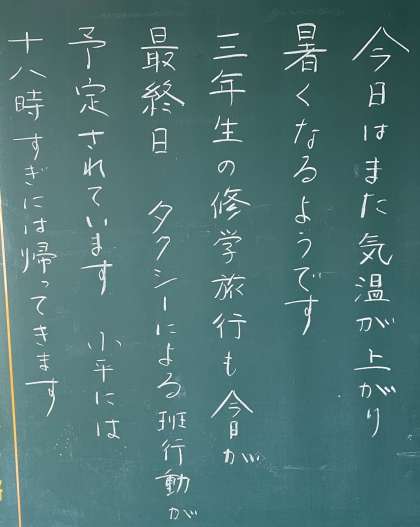 今日はまた気温が上がり
暑くなるようです
三年生の修学旅行も今日が
最終日 タクシーによる班行動が
予定されています 小平には
十八時すぎには帰ってきます